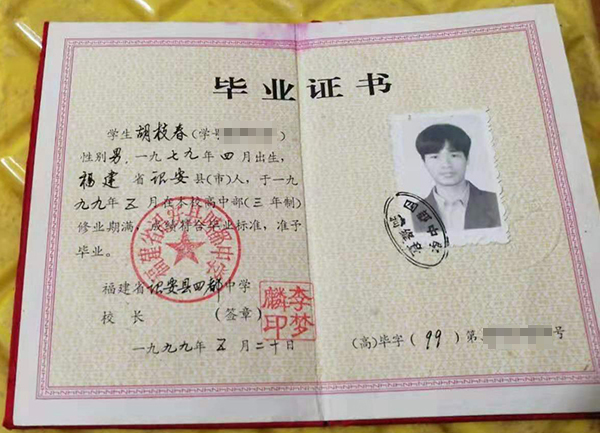 毕业证书
学生 胡枝春 (学号 )
性别 男, 一九七九年 四 月出生,
福建 省 诏安 县(市)人, 于一九
九九年 五 月在本校高中部(三年制)
修业期满, 成绩符合毕业标准, 准予
毕业。
福建省诏安县四都中学
校 长 (签章)
李梦麟印
一九九九年 五 月二十日
(高)毕字( 99 )第 号